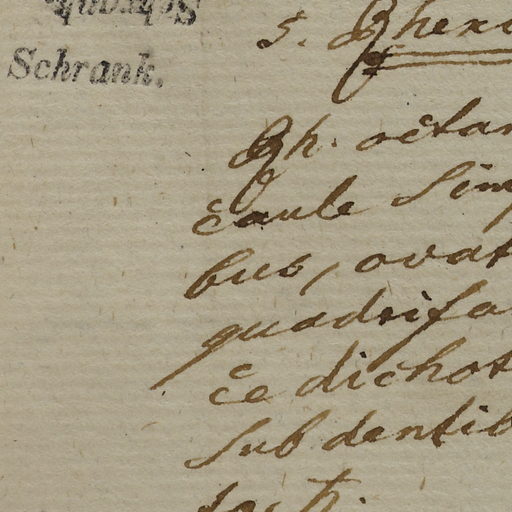 Schrank.
Schrank.
5. Rhexi
Rh. octan
caule Sim
bus, ovat
quadrifa
ce dichot
Sub dentib